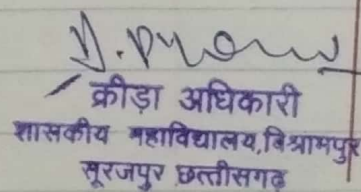 क्रीड़ा अधिकारी
शासकीय महाविद्यालय,बिश्रामपुर
सूरजपुर छत्तीसगढ़